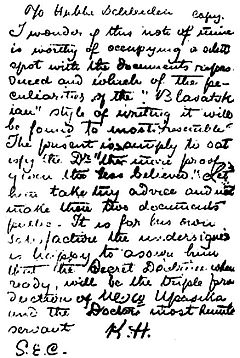 To Hubbe Schleiden
Copy.
I wonder if this note of mine
is worthy of occupying a select
spot with the documents repro-
duced and which of the pe-
culiarities of the "Blavatsk
ian" style of writing it will
be found to most resemble?
The present is simply to sat
isfy the Dr. "the more proof
given the less believed." Let
him take my advice and not
make these two documents
public. It is for his own
satisfaction the undersigned
is happy to assure him
that the Secret Doctrine when
ready, will be the triple pro
duction of Upasika
and the Doctor's most humble
servant K.H.
S.E.C.